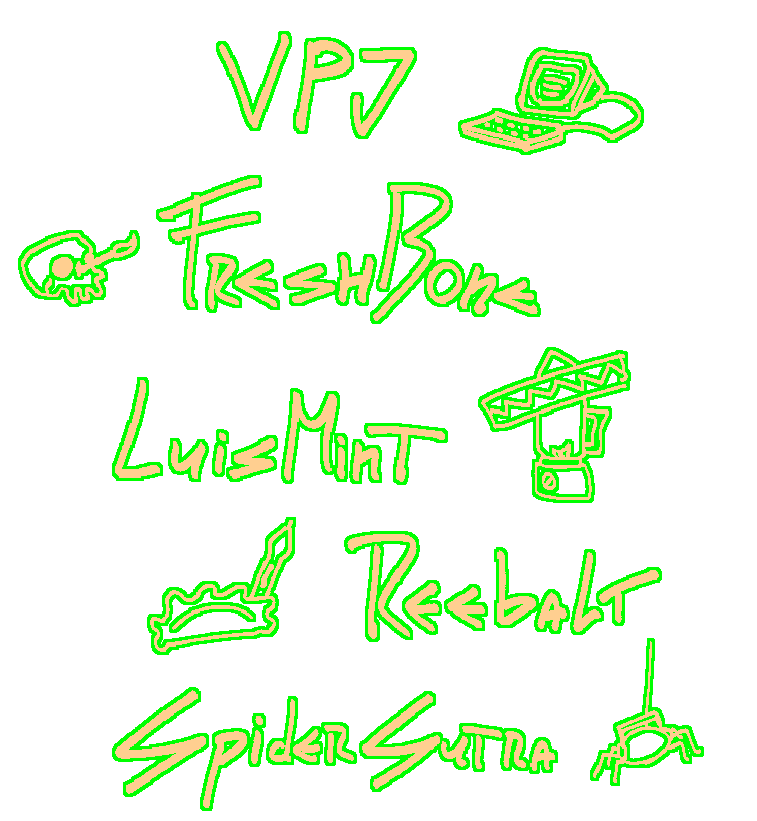 VPJ
FRESHBONE
LuisMinT
ReebALT
SpiderSuTRA